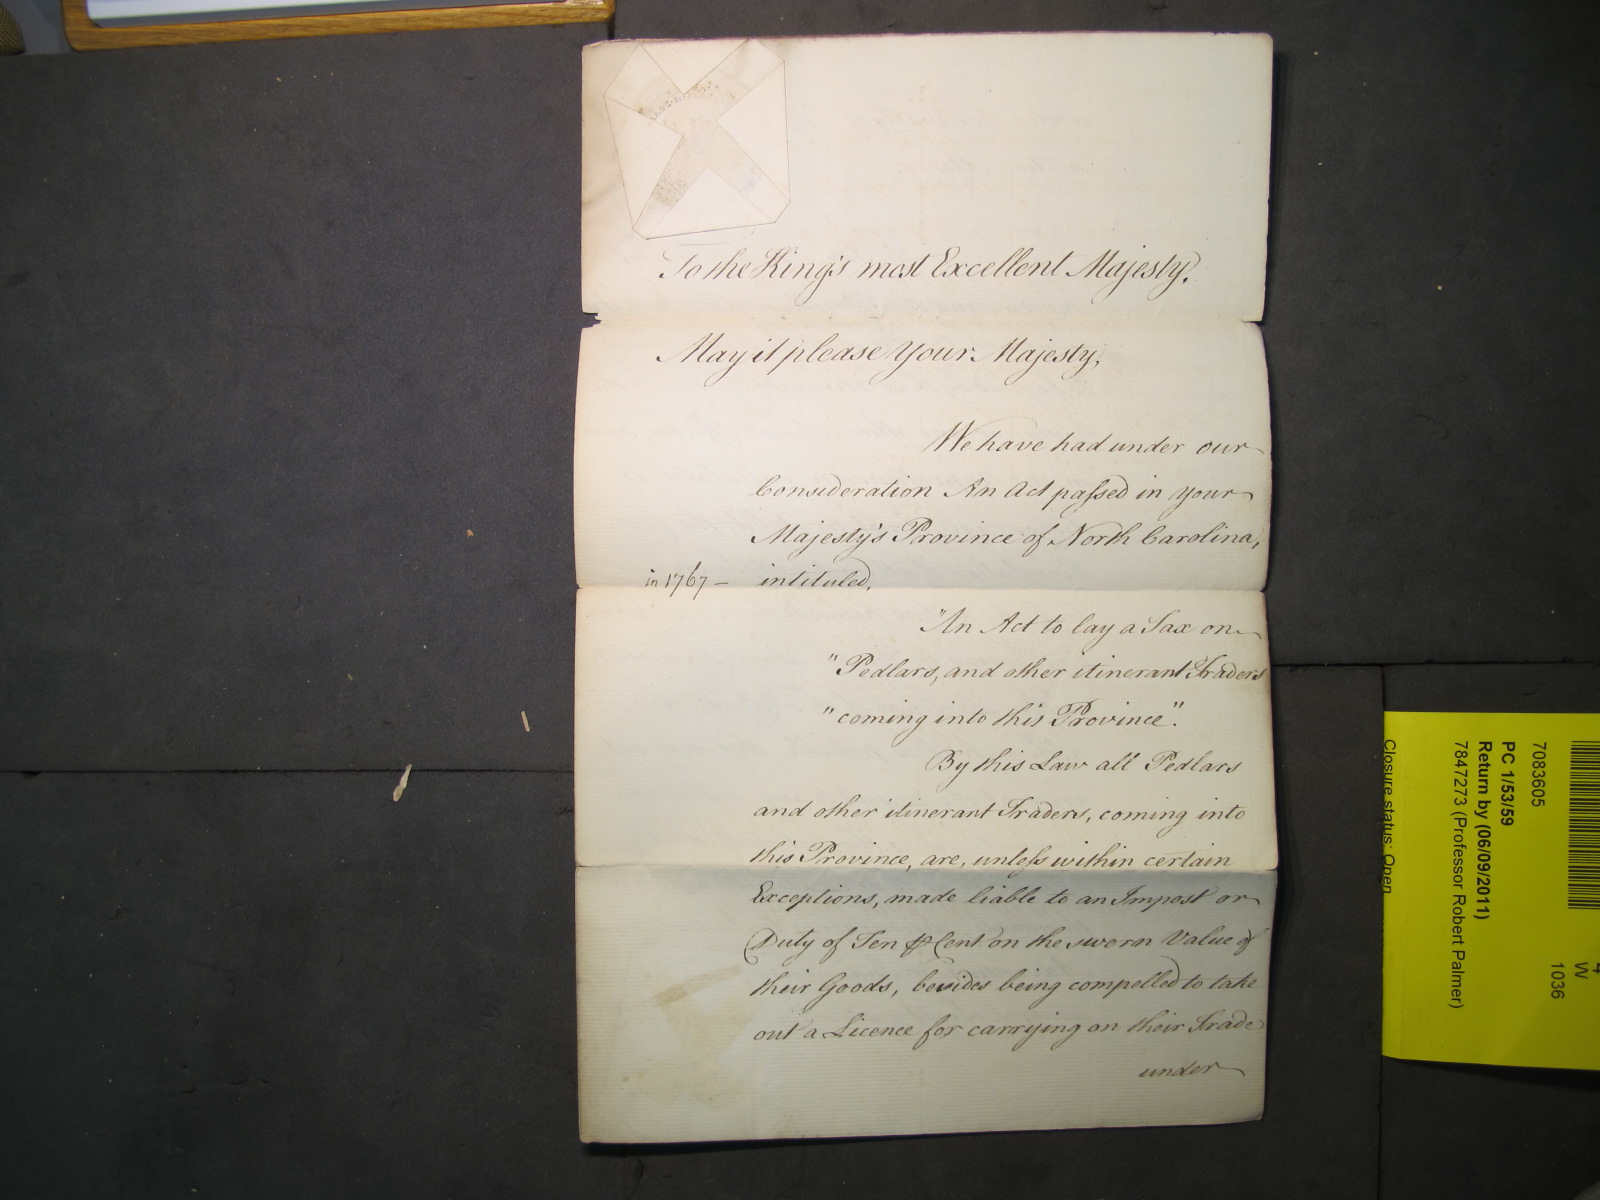 To the King's most Excellent Majesty,
May it please Your Majesty,
We have had under our
Consideration An Act paſsed in Your
Majesty's Province of North Carolina,
in 1767 — intituled,
"An Act to lay a Tax on
"Pedlars, and other itinerant Traders
"coming into this Province".
By this Law all Pedlars
and other itinerant Traders, coming into
this Province, are, unleſs within certain
Exceptions, made liable to an Impost or
Duty of Ten ⅌ Cent on the sworn Value of
their Goods, besides being compelled to take
out a Licence for carrying on their Trade
under
7083605
PC 1/53/59
Return by (06/09/2011)
7847273 (Professor Robert Palmer)
Closure status: Open
4
W
1036